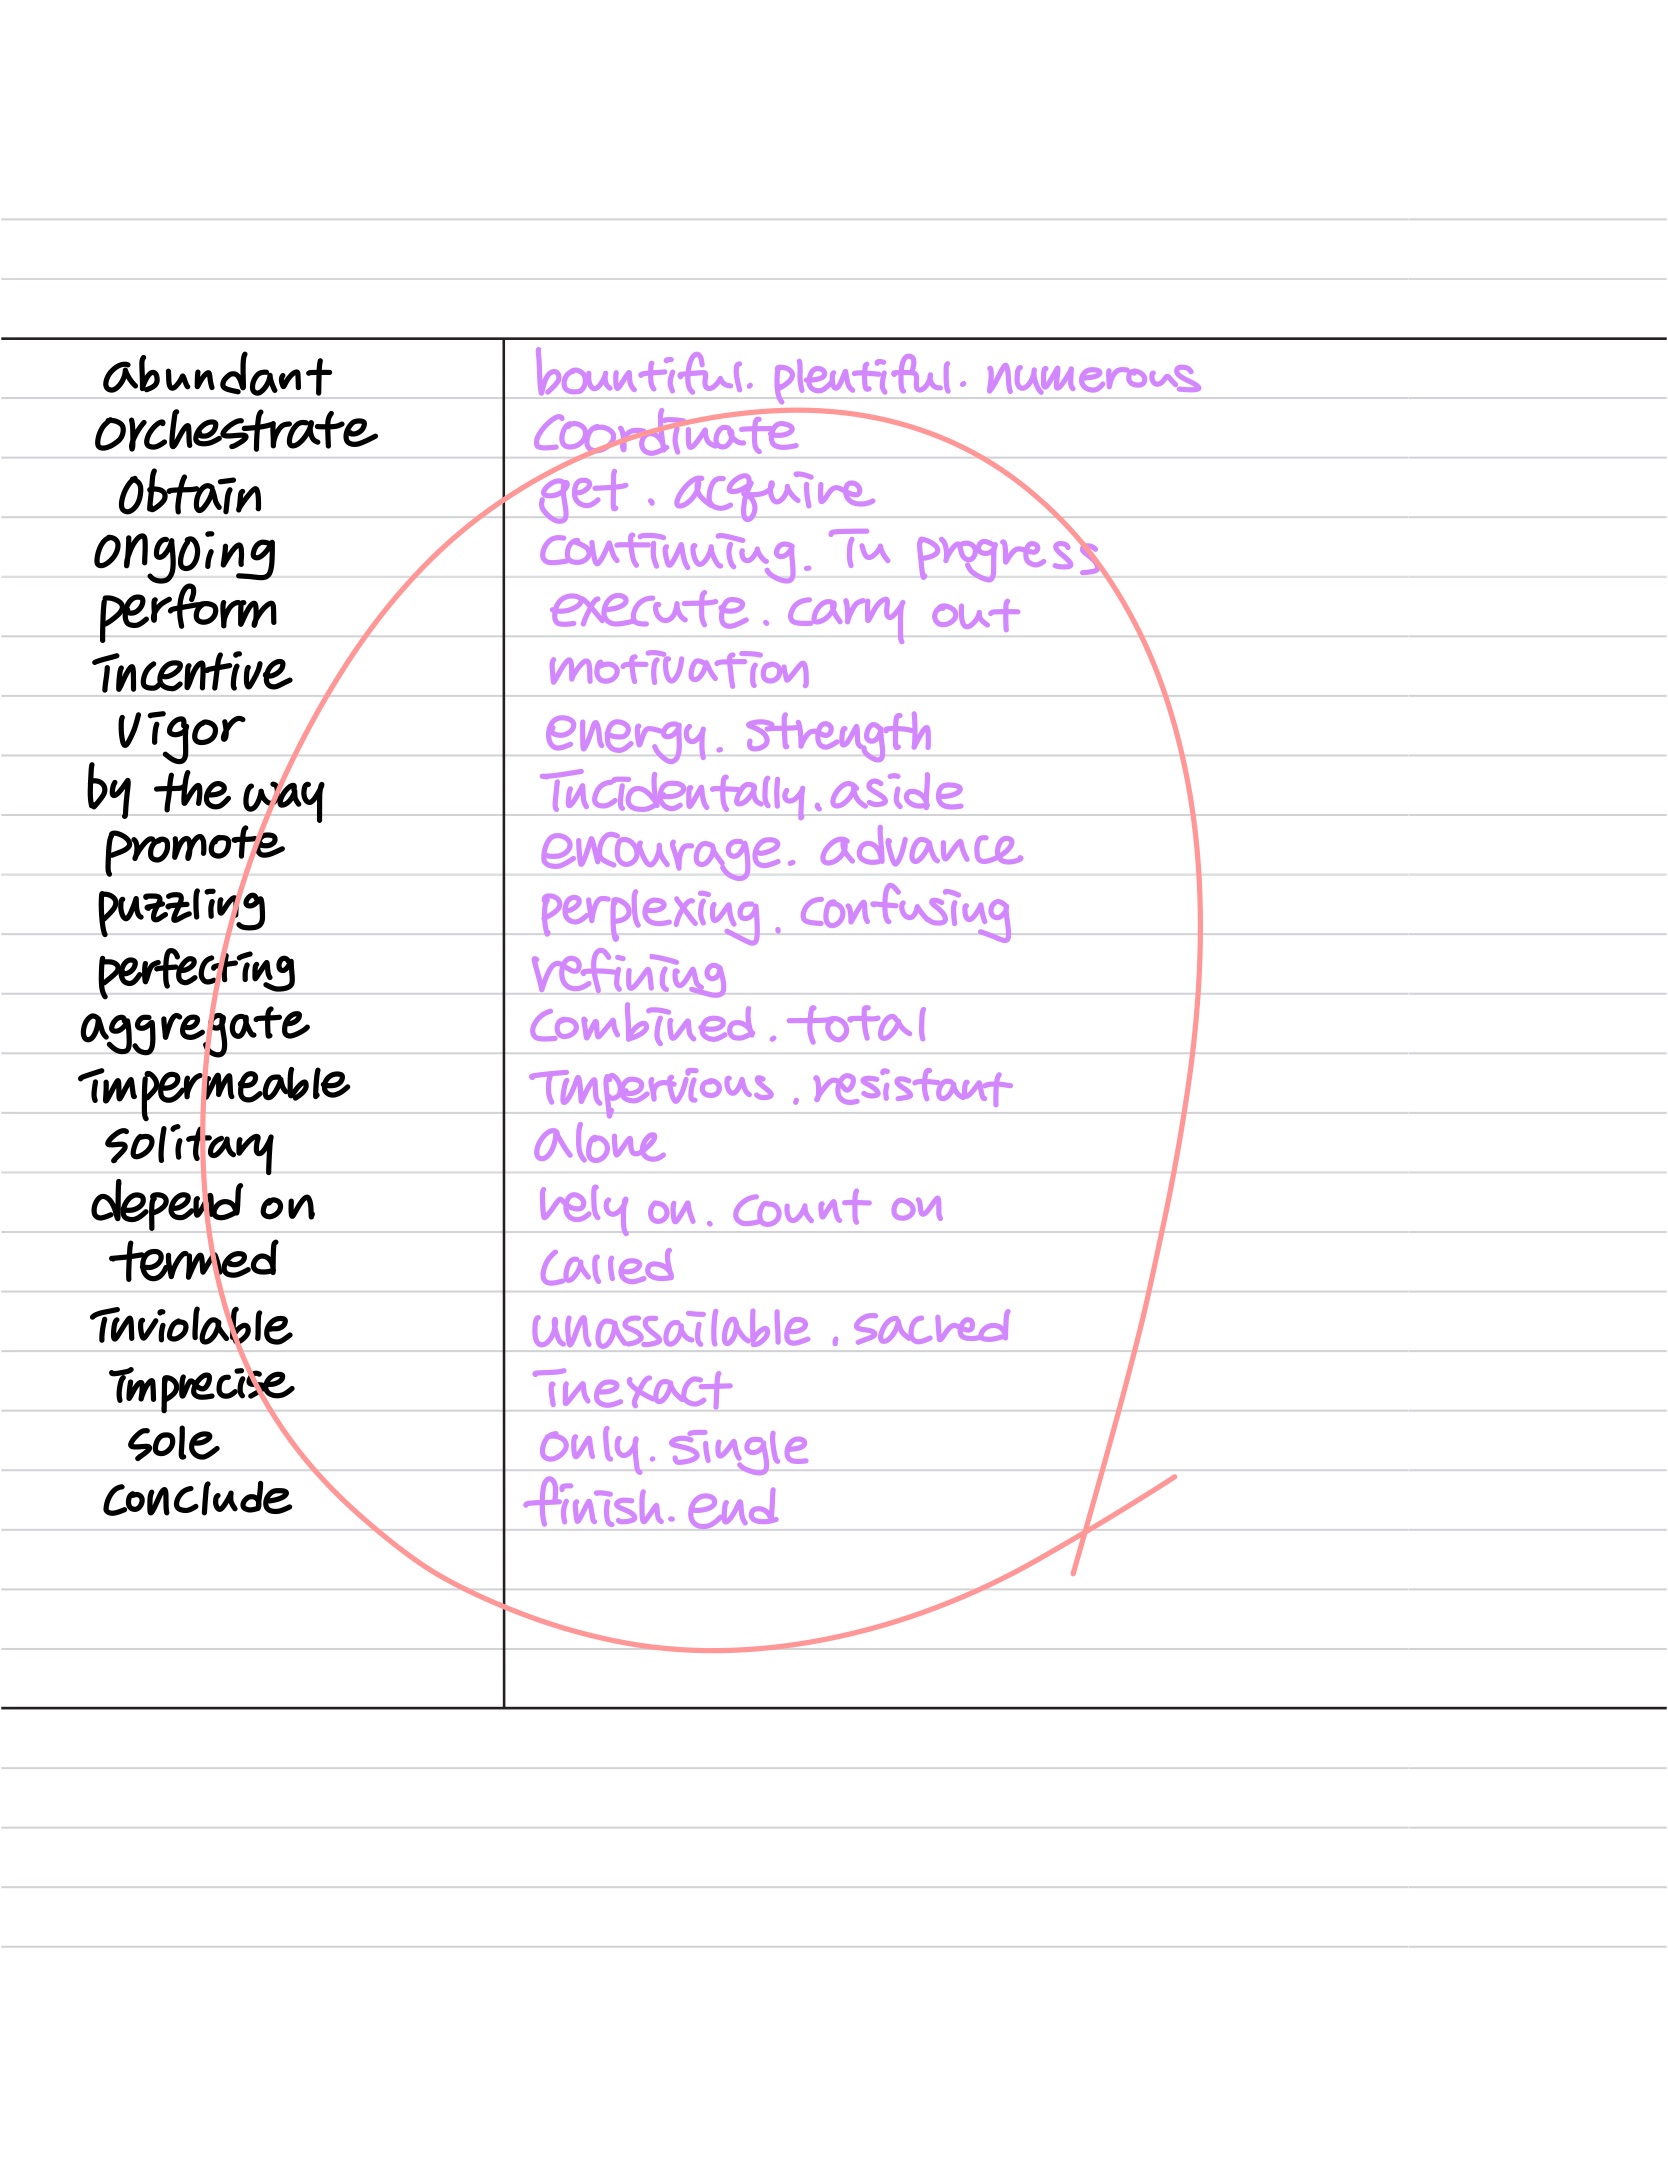 abundant bountiful. plentiful. numerous
orchestrate coordinate
obtain get. acquire
ongoing continuing. In progress
perform execute. carry out
incentive motivation
vigor energy. strength
by the way Incidentally. aside
promote encourage. advance
puzzling perplexing. confusing
perfecting refining
aggregate combined. total
impermeable Impervious. resistant
solitary alone
depend on rely on. count on
termed called
Inviolable unassailable. sacred
imprecise inexact
sole only. single
conclude finish. end